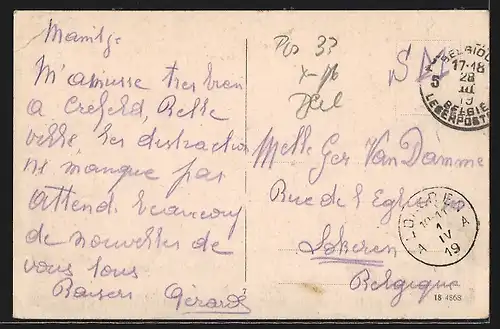 M'amuse tres bien
a Crefeld, Belle
ville, les distraction
ne manque pas
attend beaucoup
de nouvelles de
vous tous
Baisers Gérard
Pos 33
S M
BELGIQUE
17-18
28
III
19
BELGIE
LEGERPOSTERIJ
5
Melle Ger Van Damme
Rue de l'Eglise
Lokeren
Belgique
LOKEREN
1
IV
19
A A
7
18 4868